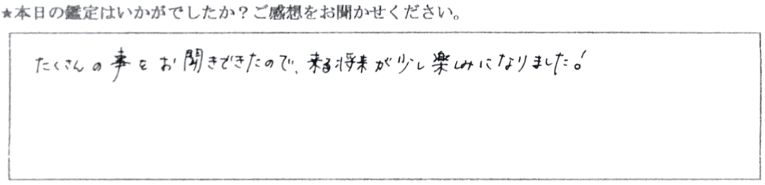 ★本日の鑑定はいかがでしたか？ご感想をお聞かせください。
たくさんの事をお聞きできたので、来る将来が少し楽しみになりました！